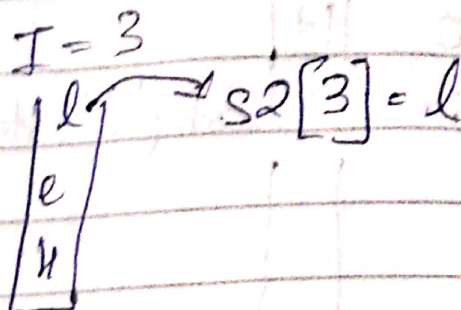 I = 3
l → s2[3] = l
e
H